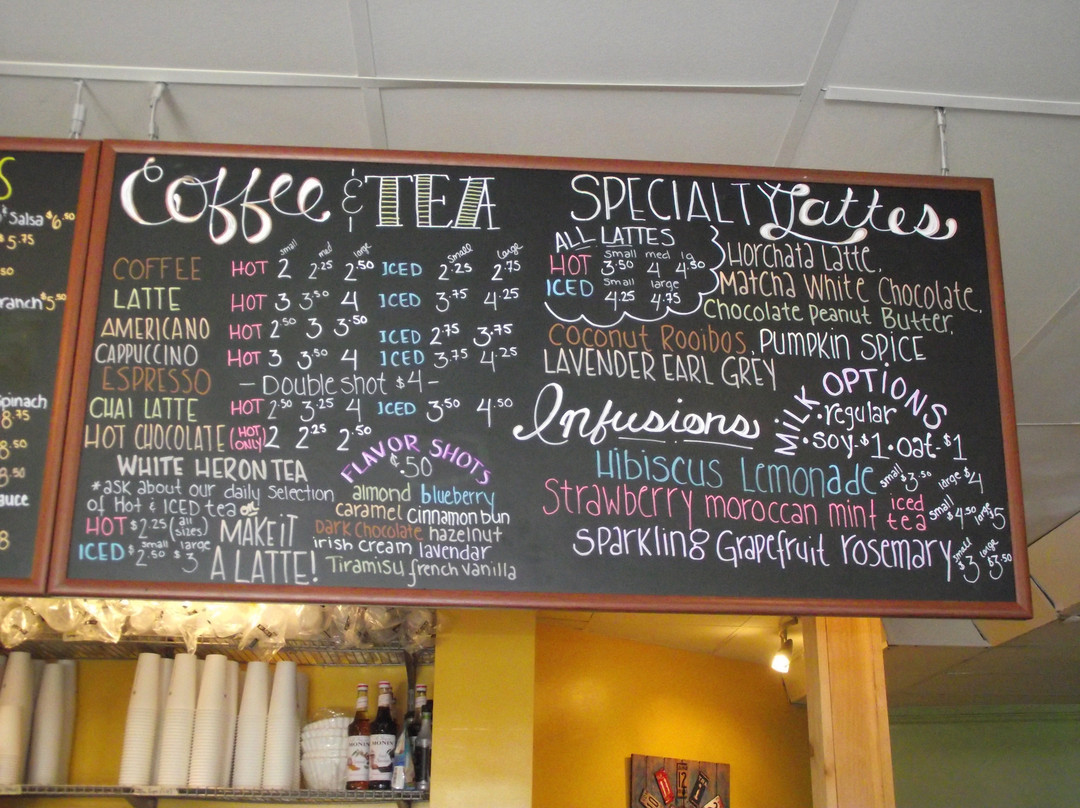 S
Salsa $6.50
$5.75
.50
ranch $5.50
spinach
8.75
8.50
8.50
auce
8
Coffee & TEA
small med large small large
COFFEE HOT 2 2.25 2.50 ICED 2.25 2.75
LATTE HOT 3 3.50 4 ICED 3.75 4.25
AMERICANO HOT 2.50 3 3.50 ICED 2.75 3.75
CAPPUCCINO HOT 3 3.50 4 ICED 3.75 4.25
ESPRESSO - Double shot $4 -
CHAI LATTE HOT 2.50 3.25 4 ICED 3.50 4.50
HOT CHOCOLATE (HOT ONLY) 2 2.25 2.50
WHITE HERON TEA
*ask about our daily selection
of Hot & ICED tea or
HOT $2.25 (all sizes)
small large
ICED $2.50 $3
MAKE iT
A LATTE!
FLAVOR SHOTS
¢.50
almond blueberry
caramel cinnamon bun
Dark Chocolate hazelnut
irish cream lavendar
Tiramisu french vanilla
SPECIALTY Lattes
ALL LATTES
small med lg
HOT 3.50 4 4.50
small large
ICED 4.25 4.75
Horchata Latte,
Matcha White Chocolate,
Chocolate Peanut Butter,
Coconut Rooibos, Pumpkin SPICE
LAVENDER EARL GREY
MILK OPTIONS
• regular
• soy - $1 • oat - $1
Infusions
Hibiscus Lemonade small $3.50 large $4
Strawberry moroccan mint iced tea small $4.50 large $5
Sparkling Grapefruit rosemary small $3 large $3.50
MONIN
MONIN
12